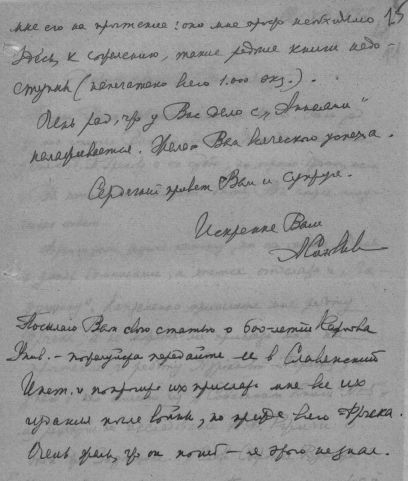 мне его на прочтение! оно мне просто необходимо 15
Здесь, к сожалению, такие редкие книги недо-
ступны (напечатано всего 1.000 экз.).
Очень рад, что у Вас дело с „Анналами"
налаживается. Желаю Вам всяческого успеха.
Сердечный привет Вам и супруге.
Искренне Ваш
Посылаю Вам свою статью о 600-летии Карлова
Унив. – пожалуйста передайте ее в Славянский
Инст. и попросите их прислать мне все их
издания после войны, но прежде всего Фрчека.
Очень жаль, что он погиб – я этого не знал.